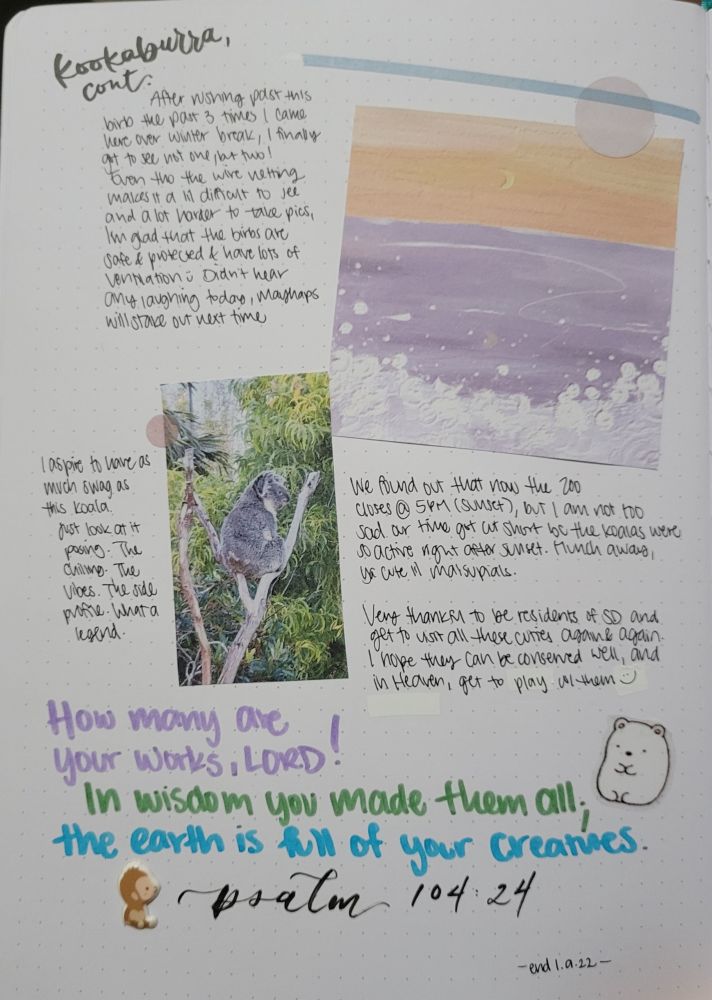 Kookaburra,
cont.
After rushing past this
birb the past 3 times I came
here over winter break, I finally
got to see not one, but two!
Even tho the wire netting
makes it a lil difficult to see
and a lot harder to take pics,
I'm glad that the birbs are
safe & protected & have lots of
ventilation :) Didn't hear
any laughing today, mayhaps
will stake out next time
I aspire to have as
much swag as
this koala.
Just look at it
posing. The
chilling. The
vibes. The side
profile. What a
legend.
We found out that now the zoo
closes @ 5PM (sunset), but I am not too
sad our time got cut short bc the koalas were
so active right after sunset. Munch away,
ye cute lil marsupials.
Very thankful to be residents of SD and
get to visit all these cuties again & again.
I hope they can be conserved well, and
in Heaven, get to play w/ them :)
How many are
your works, LORD!
In wisdom you made them all;
the earth is full of your creatures.
~psalm 104:24
-end 1.9.22-